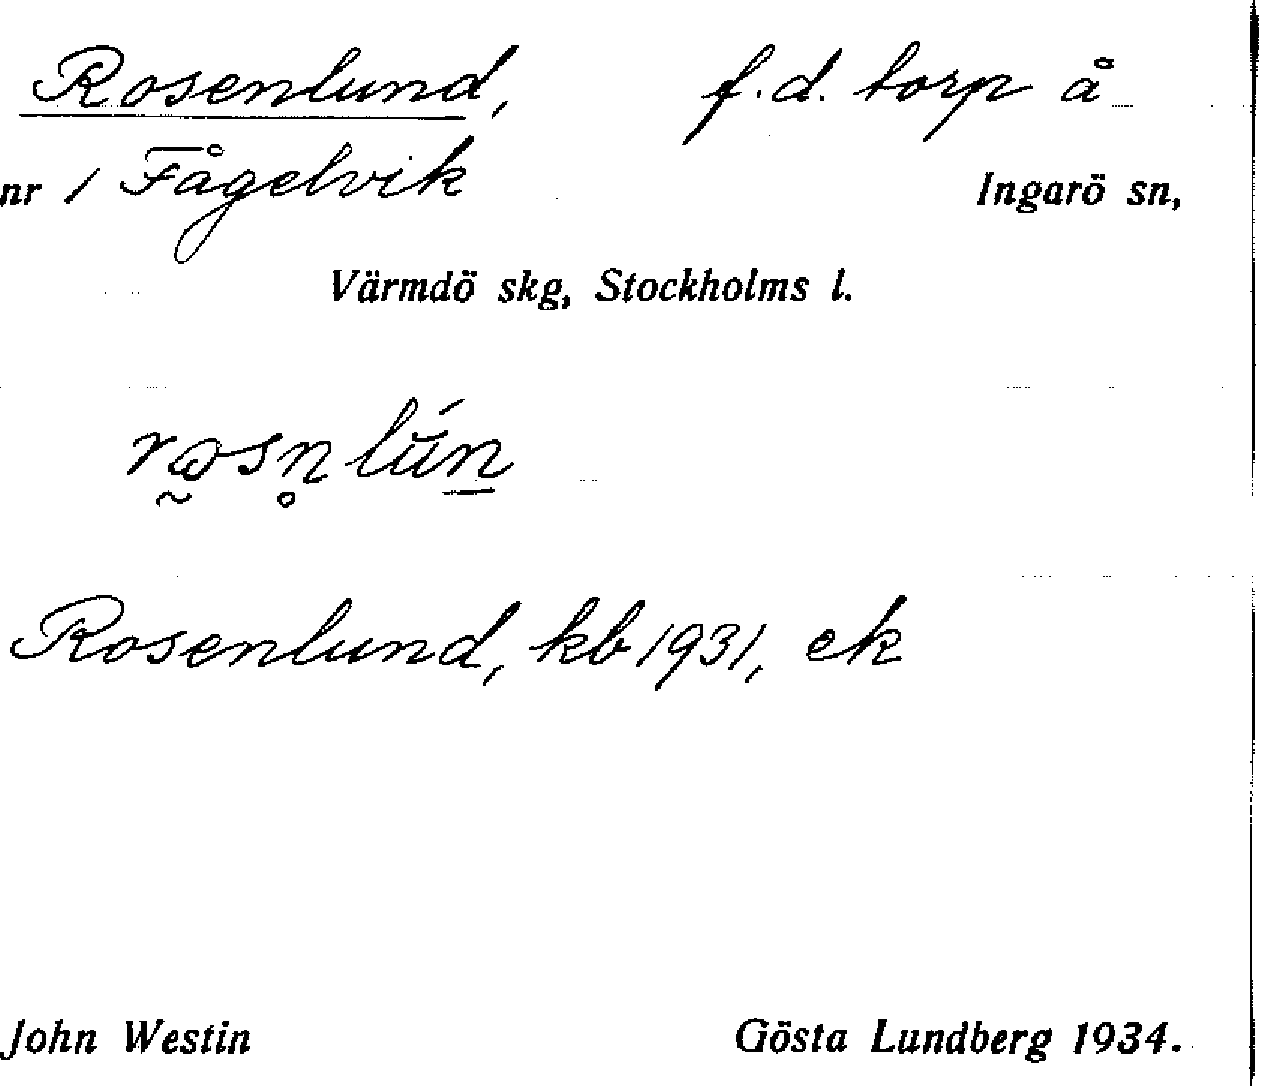 Rosenlund, f.d. torp å
nr 1 Fågelvik Ingarö sn,
Värmdö skg, Stockholms l.
rω̰sn̥lŭ́n̲
Rosenlund, kb 1931, ek
John Westin Gösta Lundberg 1934.